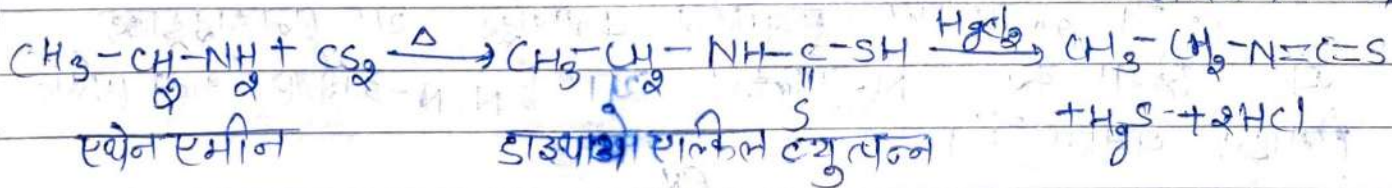 CH₃-CH₂-NH₂ + CS₂ —Δ→ CH₃-CH₂-NH-C-SH —HgCl₂→ CH₃-CH₂-N=C=S
||
S
+HgS+2HCl
एथेन एमीन डाइथायो एल्किल व्युत्पन्न